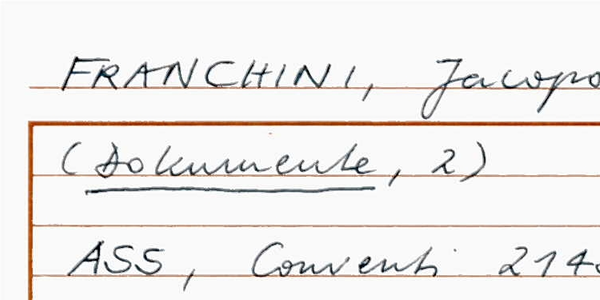 FRANCHINI, Jacopo
(Dokumente, 2)
ASS, Conventi 214